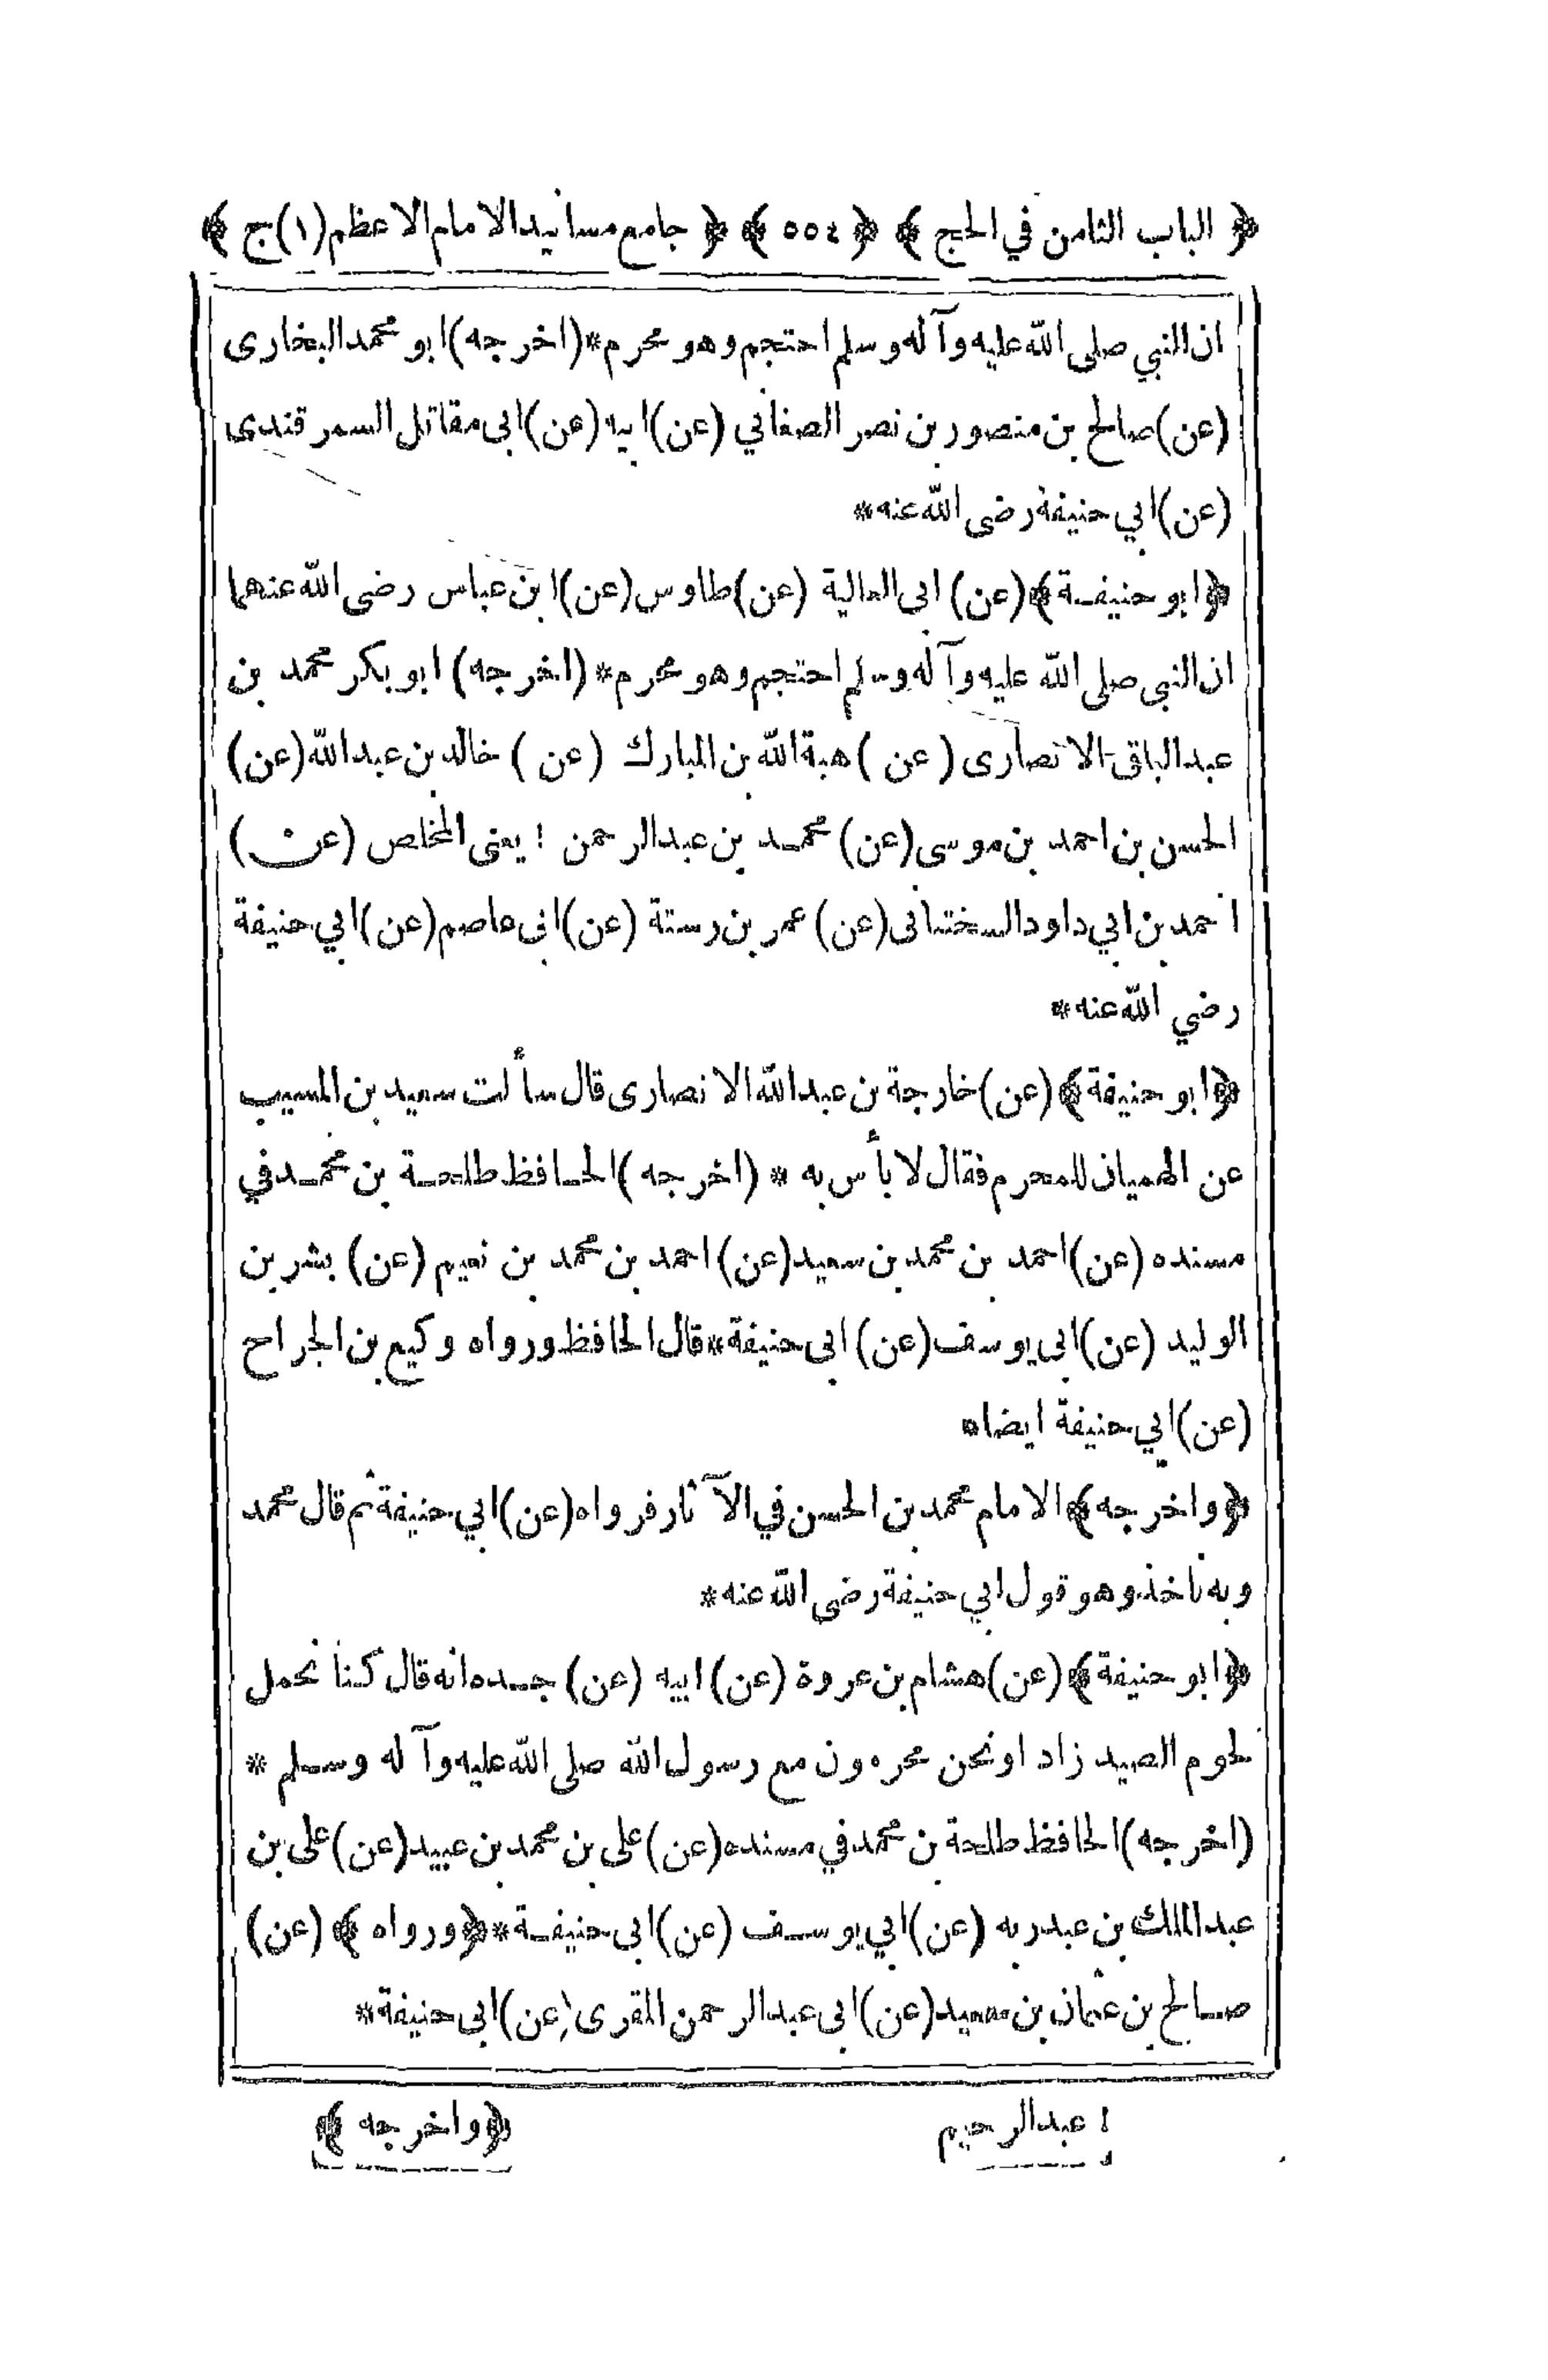 ﴿ الباب الثامن في الحج ﴾ ﴿ ٥٥٤ ﴾ ﴿ جامع مسانيد الامام الاعظم (١) ج ﴾
ان النبي صلى الله عليه وآله وسلم احتجم وهو محرم * (اخرجه) ابو محمد البخارى
(عن) صالح بن منصور بن نصر الصفاني (عن) ابيه (عن) ابى مقاتل السمرقندى
(عن) ابي حنيفة رضى الله عنه *
﴿ ابو حنيفة ﴾ (عن) ابى العالية (عن) طاوس (عن) ابن عباس رضى الله عنهما
ان النبي صلى الله عليه وآله وسلم احتجم وهو محرم * (اخرجه) ابو بكر محمد بن
عبد الباقى الانصارى (عن) هبة الله بن المبارك (عن) خالد بن عبد الله (عن)
الحسن بن احمد بن موسى (عن) محمد بن عبد الرحمن ! يعنى المخلص (عن)
احمد بن ابي داود السختيانى (عن) عمر بن رستة (عن) ابى عاصم (عن) ابي حنيفة
رضي الله عنه *
﴿ ابو حنيفة ﴾ (عن) خارجة بن عبد الله الانصارى قال سألت سعيد بن المسيب
عن الهميان للمحرم فقال لا بأس به * (اخرجه) الحافظ طلحة بن محمد في
مسنده (عن) احمد بن محمد بن سعيد (عن) احمد بن محمد بن نعيم (عن) بشر بن
الوليد (عن) ابى يوسف (عن) ابى حنيفة * قال الحافظ ورواه وكيع بن الجراح
(عن) ابي حنيفة ايضا *
﴿ واخرجه ﴾ الامام محمد بن الحسن في الآثار فرواه (عن) ابي حنيفة ثم قال محمد
وبه ناخذ وهو قول ابي حنيفة رضى الله عنه *
﴿ ابو حنيفة ﴾ (عن) هشام بن عروة (عن) ابيه (عن) جده انه قال كنا نحمل
لحوم الصيد زادا ونحن محرمون مع رسول الله صلى الله عليه وآله وسلم *
(اخرجه) الحافظ طلحة بن محمد في مسنده (عن) على بن محمد بن عبيد (عن) على بن
عبد الملك بن عبد ربه (عن) ابي يوسف (عن) ابى حنيفة * ﴿ ورواه ﴾ (عن)
صالح بن عثمان بن سعيد (عن) ابى عبد الرحمن المقرى (عن) ابى حنيفة *
! عبد الرحيم
﴿ واخرجه ﴾